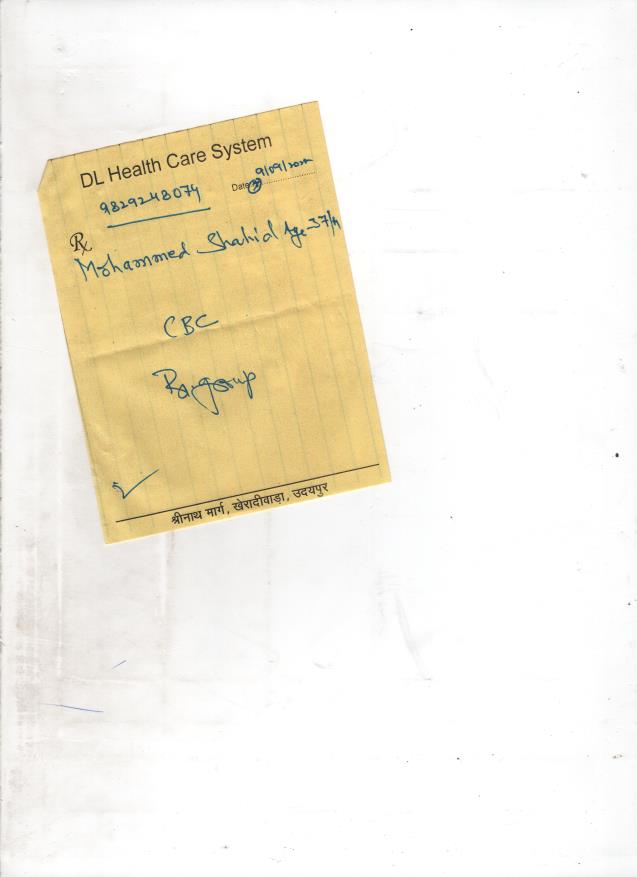 DL Health Care System
9829248074
Date 9/09/202
Rx
Mohammed Shahid Age-37/M
CBC
श्रीनाथ मार्ग, खेरादीवाड़ा, उदयपुर